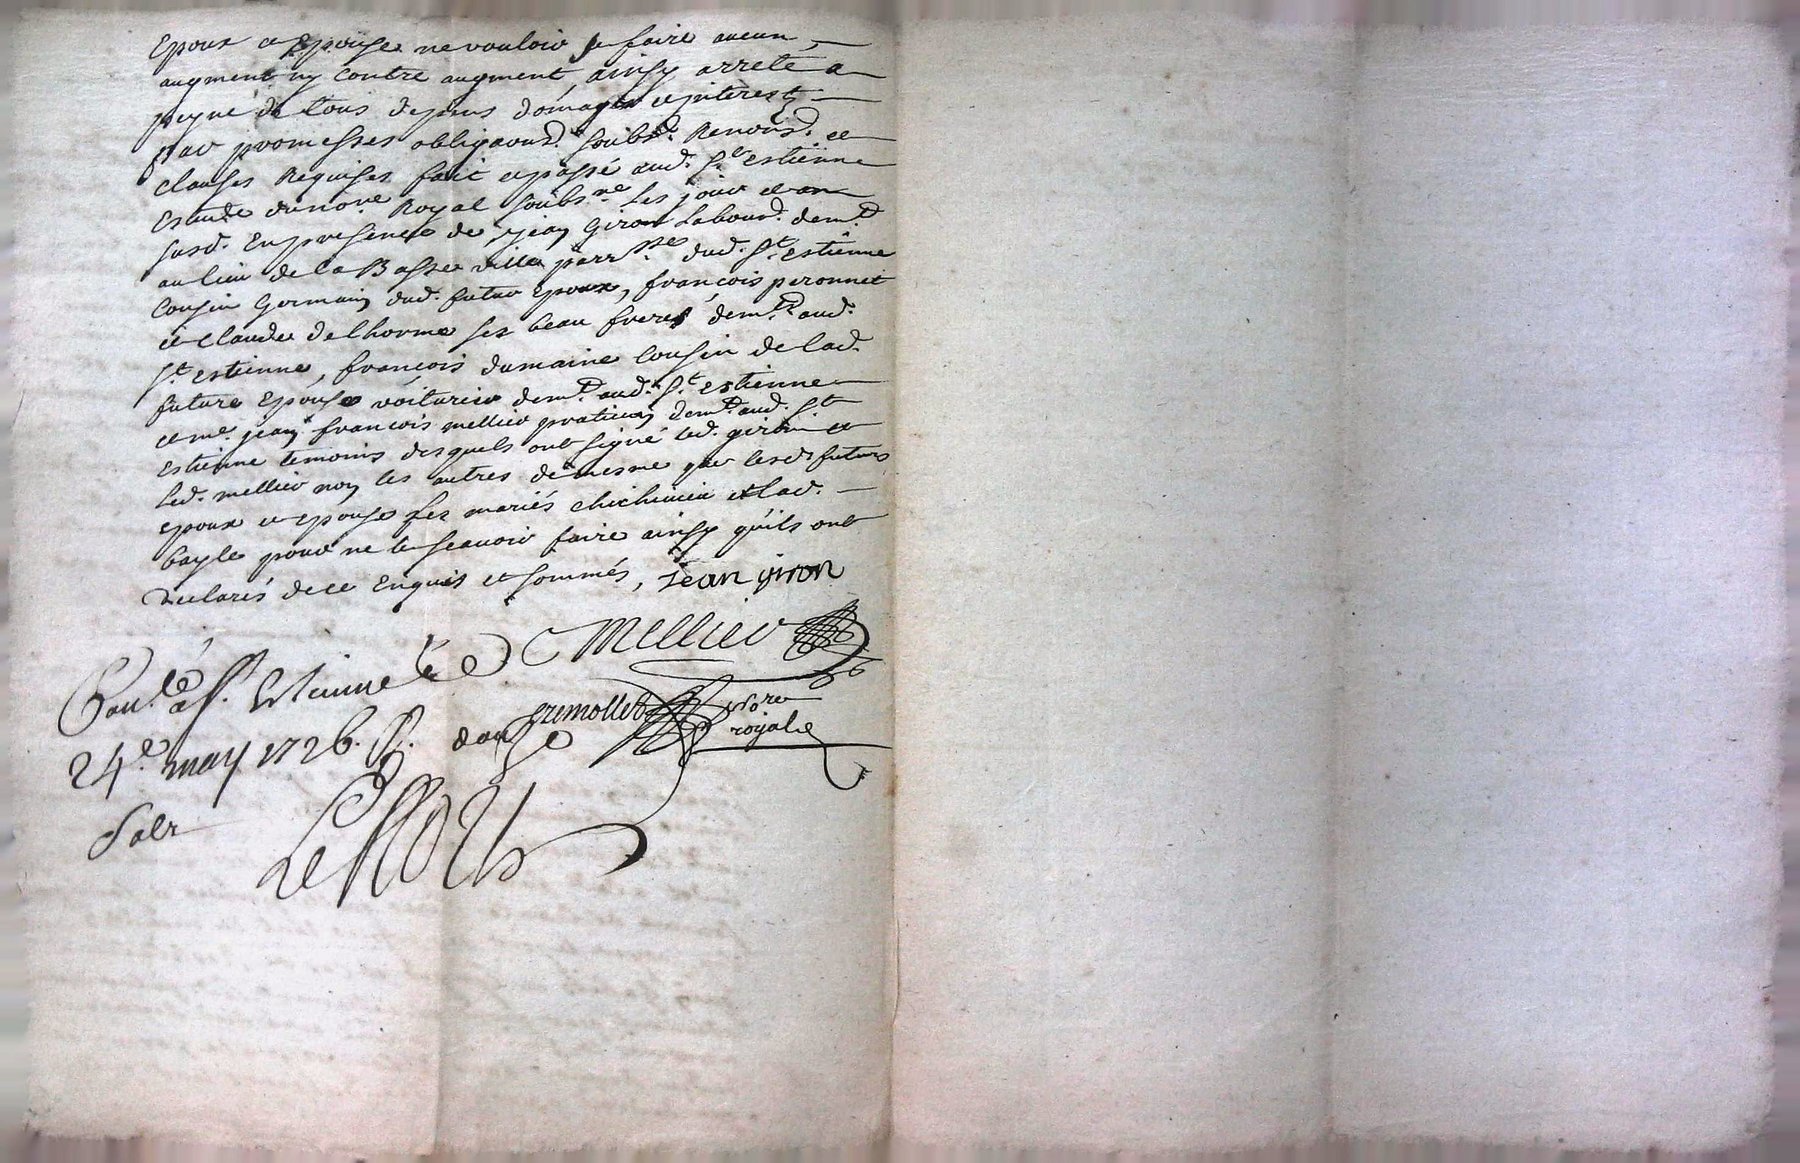 Epoux et Epouse ne vouloir se faire aucun
augment ny contre augment ainsy arreté a
peyne de tous depens domages et jnterest
par promesses obligaons. soubs. Renons. et
clauses Requises fait et passé aud. St. estienne
Estude du nore. Royal soubsne. Les jour et an
susd. En presence de jean Giron Labour. demt.
au lieu de la Basse ville parrsse. dud. St. estienne
Cousin Germain dud. futur Epoux, françois peronnet
et claude delhorme ses beau freres demts. aud.
St. estienne, françois dumaine Cousin de lad.
future Epouse voiturier demt. aud. St. estienne
et me. jean françois mellier praticien demt. aud. St.
Estienne temoins desquels ont signé led. giron et
Led. mellier non les autres de mesme que lesds futurs
epoux et epouse les mariés chichivieu et lad.
bayle pour ne le scauoir faire ainsy qu'ils ont
declarés de ce Enquis et sommés, jean giron
Mellier
Conlé. a St. Estienne le
24e. may 1726. R. douze
gremollet nore
royal
Solz
Leffort